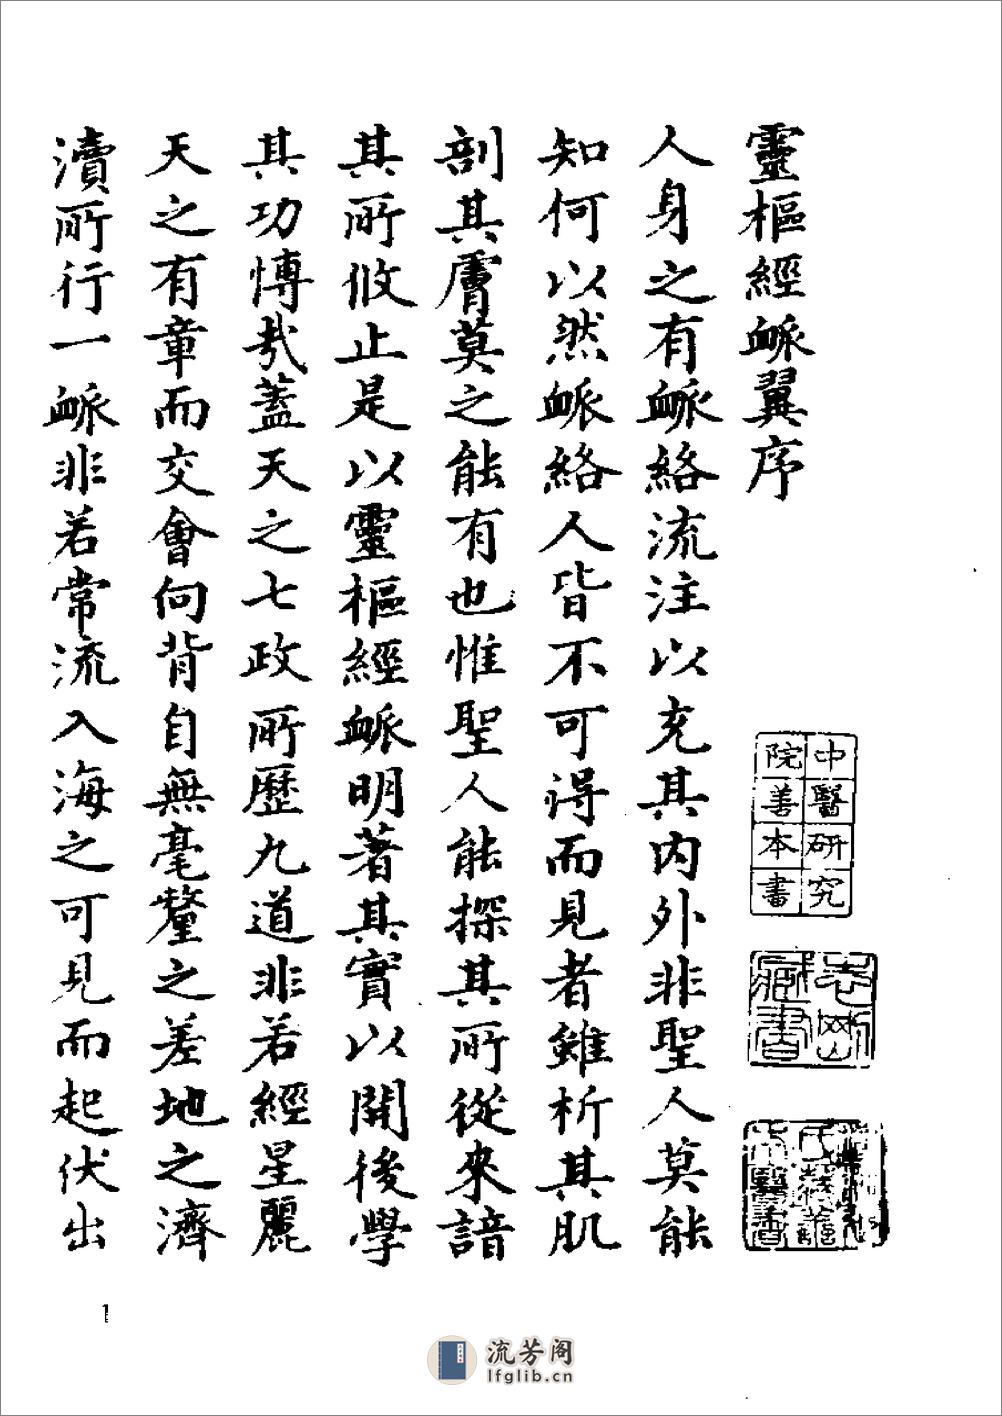 靈樞經䘑翼序
人身之有䘑絡流注以充其内外非聖人莫能
知何以然䘑絡人皆不可得而見者雖析其肌
剖其膚莫之能有也惟聖人能探其所從來諳
其所攸止是以靈樞經䘑明著其實以開後學
其功愽哉蓋天之七政所歷九道非若經星麗
天之有章而交會向背自無毫釐之差地之濟
瀆所行一䘑非若常流入海之可見而起伏出
中醫研究
院善本書
藏書
1
流芳阁
lfglib.cn